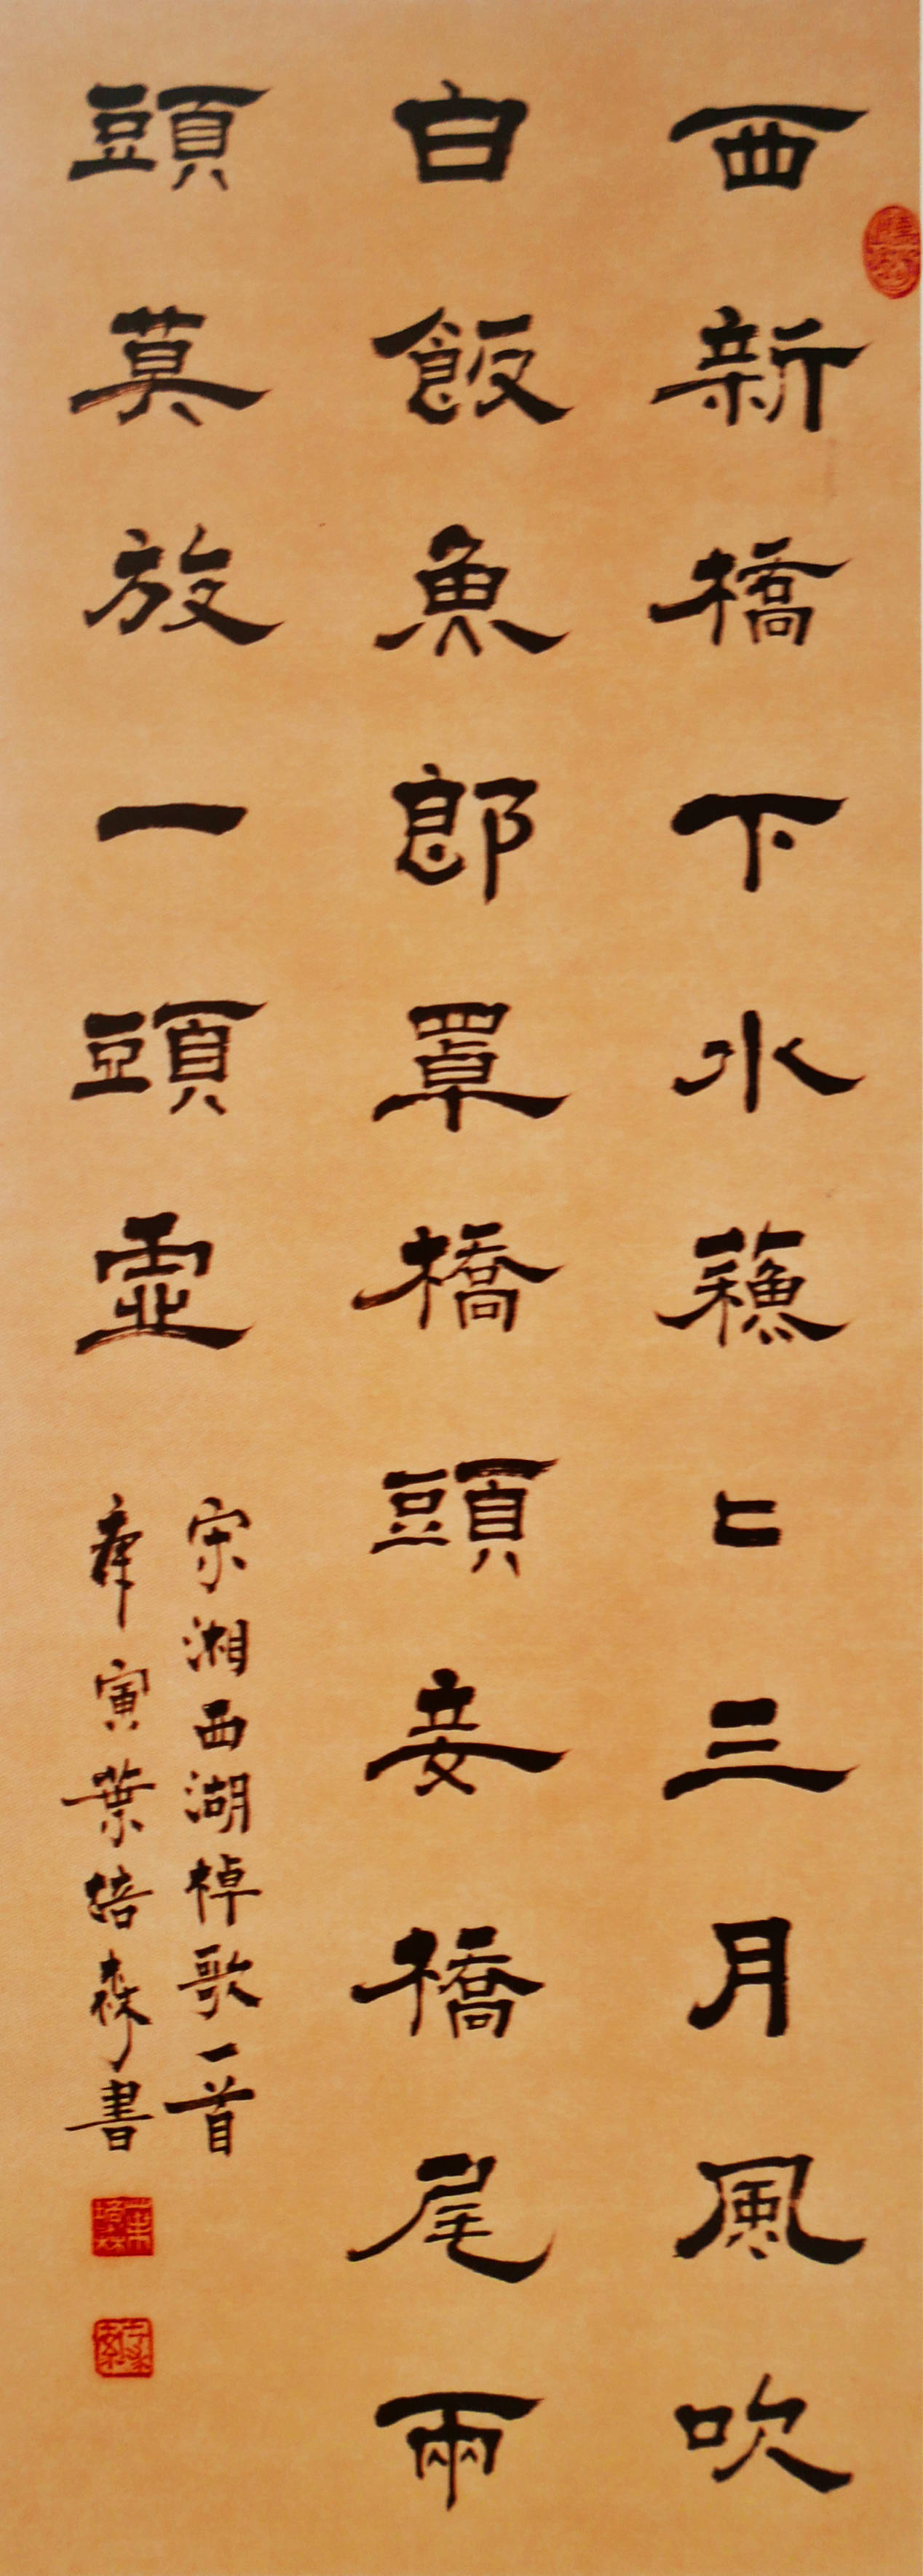 西新橋下水蘓〻三月風吹
白飯魚郎罩橋頭妾橋尾兩
頭莫放一頭虛
宋湘西湖棹歌一首
庚寅葉培森書